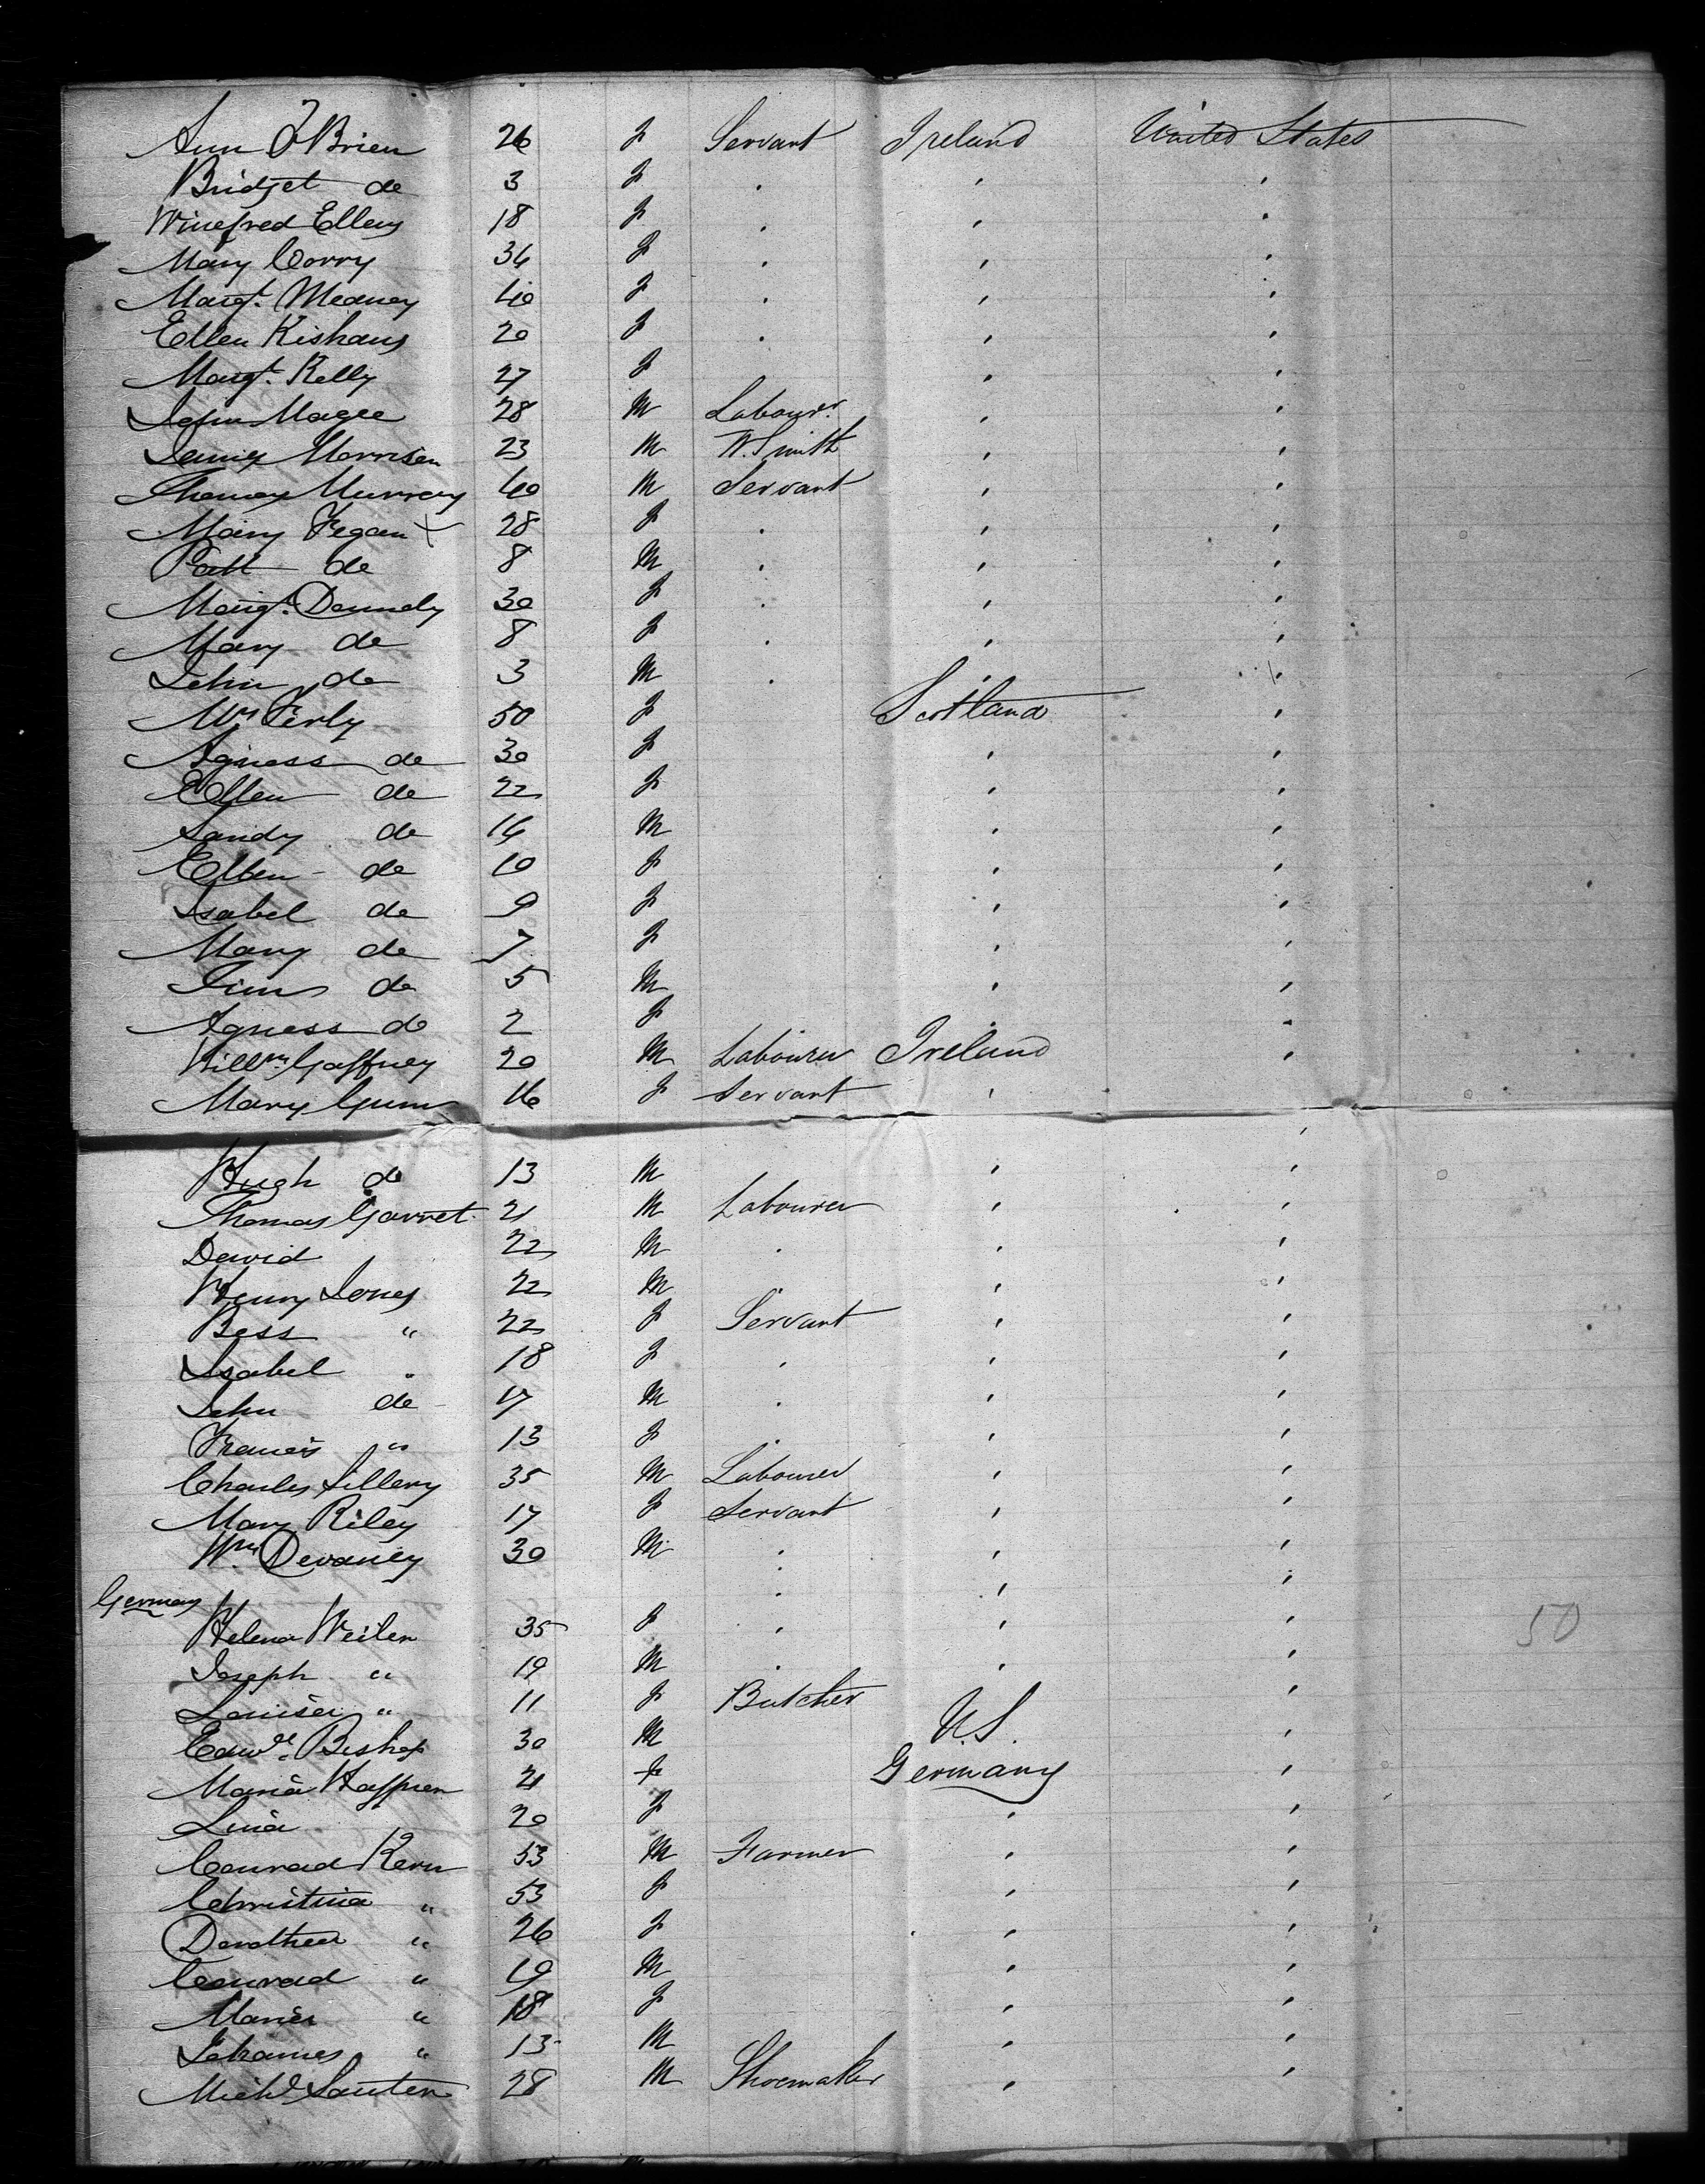 Ann O'Brien 26 f Servant Ireland United States
Bridget do 3 f . , ,
Winefred Ellens 18 f . , ,
Mary Corry 34 f . , ,
Margt. Meaney 40 f . , ,
Ellen 20 f . , ,
Margt. Kelly 27 f , ,
John Magee 28 M Labourr. , ,
James Morrison 23 M W. Smith , ,
Thomas Murray 40 M Servant , ,
Mary Fegan 28 f . , ,
Patt do 8 M . , ,
Margt. 30 f . , ,
Mary do 8 f . , ,
John do 3 M . , ,
Mrs 50 f Scotland ,
Agness do 30 f , ,
Ellen do 22 f , ,
Sandy do 14 M , ,
Ellen do 10 f , ,
Isabel do 9 f , ,
Mary do 7 f , ,
Jim do 5 M , ,
Agness do 2 f , ,
Willm. Gaffney 20 M Labourer Ireland ,
Mary Gunn 16 f Servant ,
Hugh do 13 M , ,
Thomas Garret 21 M Labourer , ,
David 22 M . , ,
Henry Jones 22 M , ,
Bess " 22 f Servant , ,
Isabel " 18 f , , ,
John do 17 M . , ,
Francis " 13 f . , ,
Charles Sillery 35 M Labourer , ,
Mary Riley 17 f Servant , ,
Wm. Devaney 30 M . , ,
Germany . , ,
Helena Weiler 35 f , , , 50
Joseph " 19 M . , ,
Louisa " 11 f Butcher ,
Edwd. Bishop 30 M U.S. ,
Maria 21 f Germany ,
Lina 20 f , ,
Conrad Kern 53 M Farmer , ,
Christina " 53 f , ,
Dorothea " 26 f , ,
Conrad " 19 M , ,
Maria " 18 f , ,
Johannes " 13 M , ,
Michl Sauter 28 M Shoemaker , ,